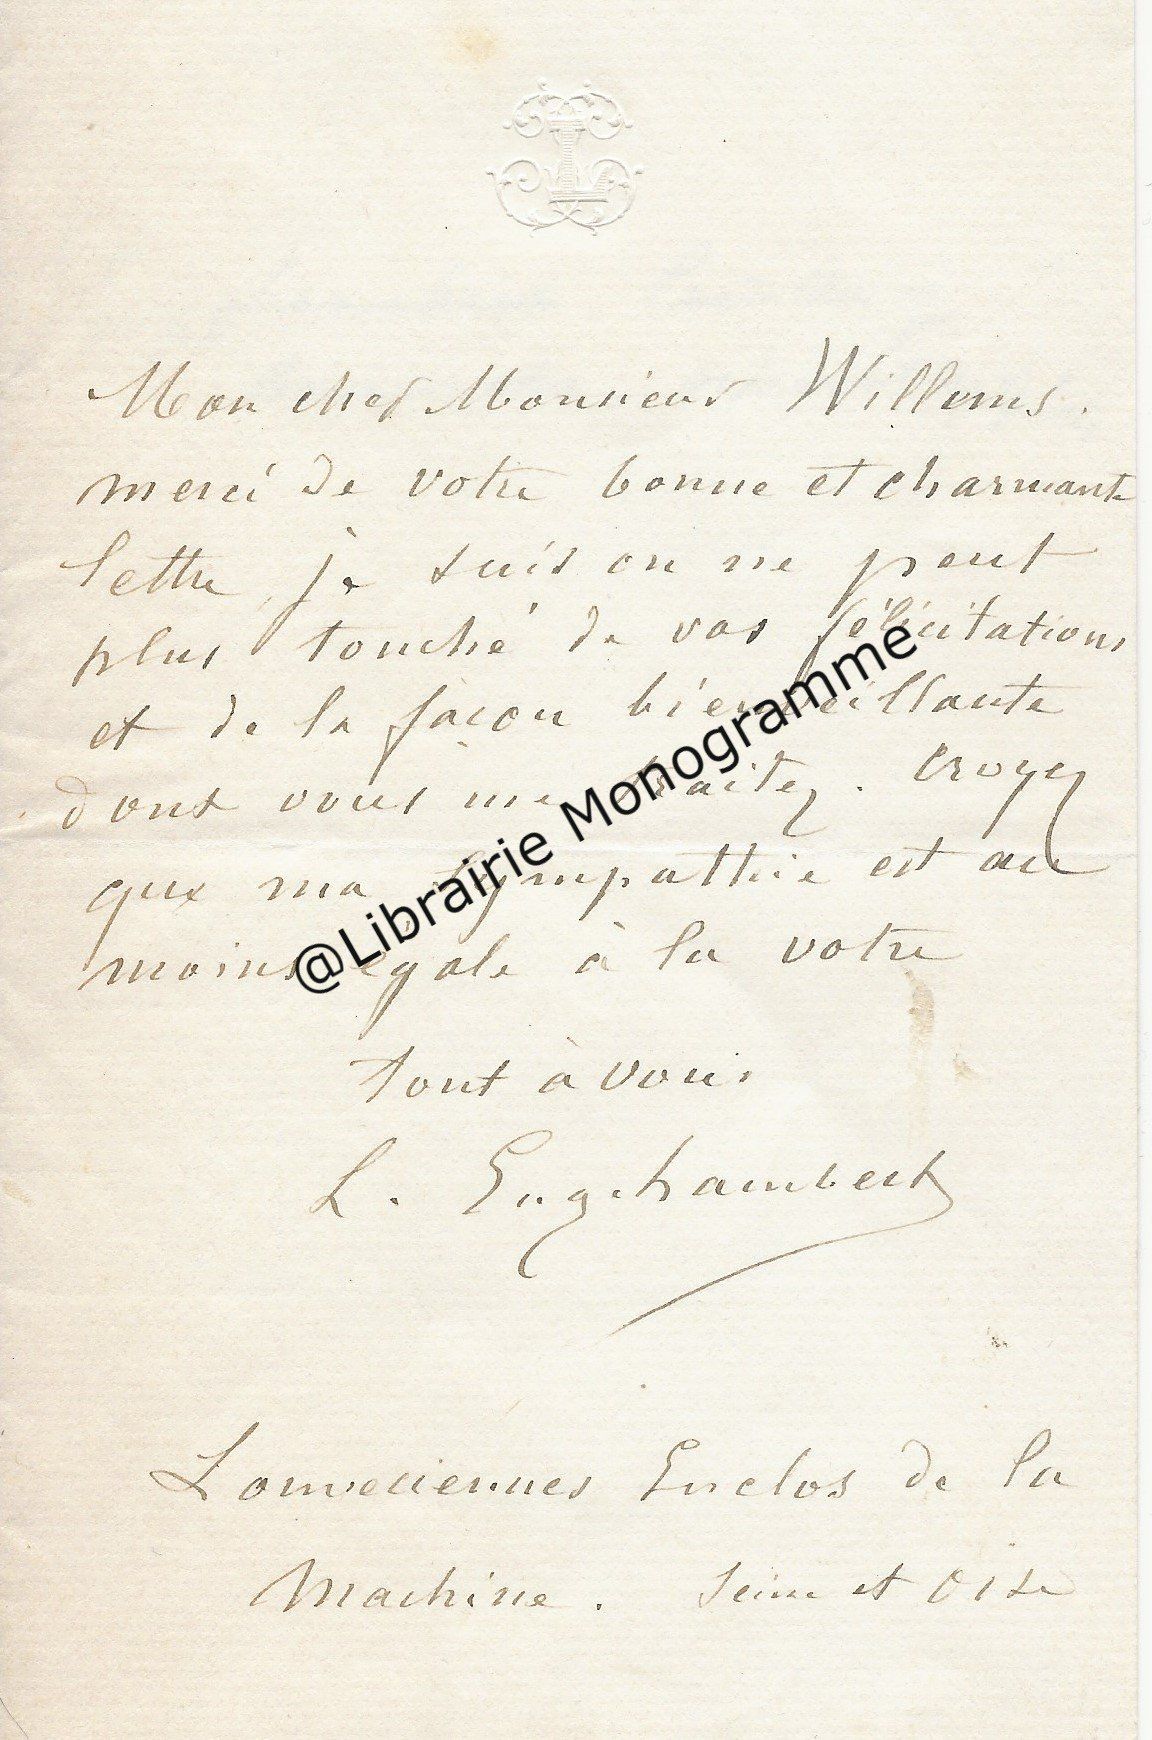 Mon cher Monsieur Willems.
merci de votre bonne et charmante
lettre, je suis on ne peut
plus touché de vos félicitations
et de la façon bienveillante
dont vous me traitez. Croyez
que ma sympathie est au
moins égale à la votre
tout à vous
L. Eug. Lambert
Louveciennes Enclos de la
Machine. Seine et Oise
@Librairie Monogramme